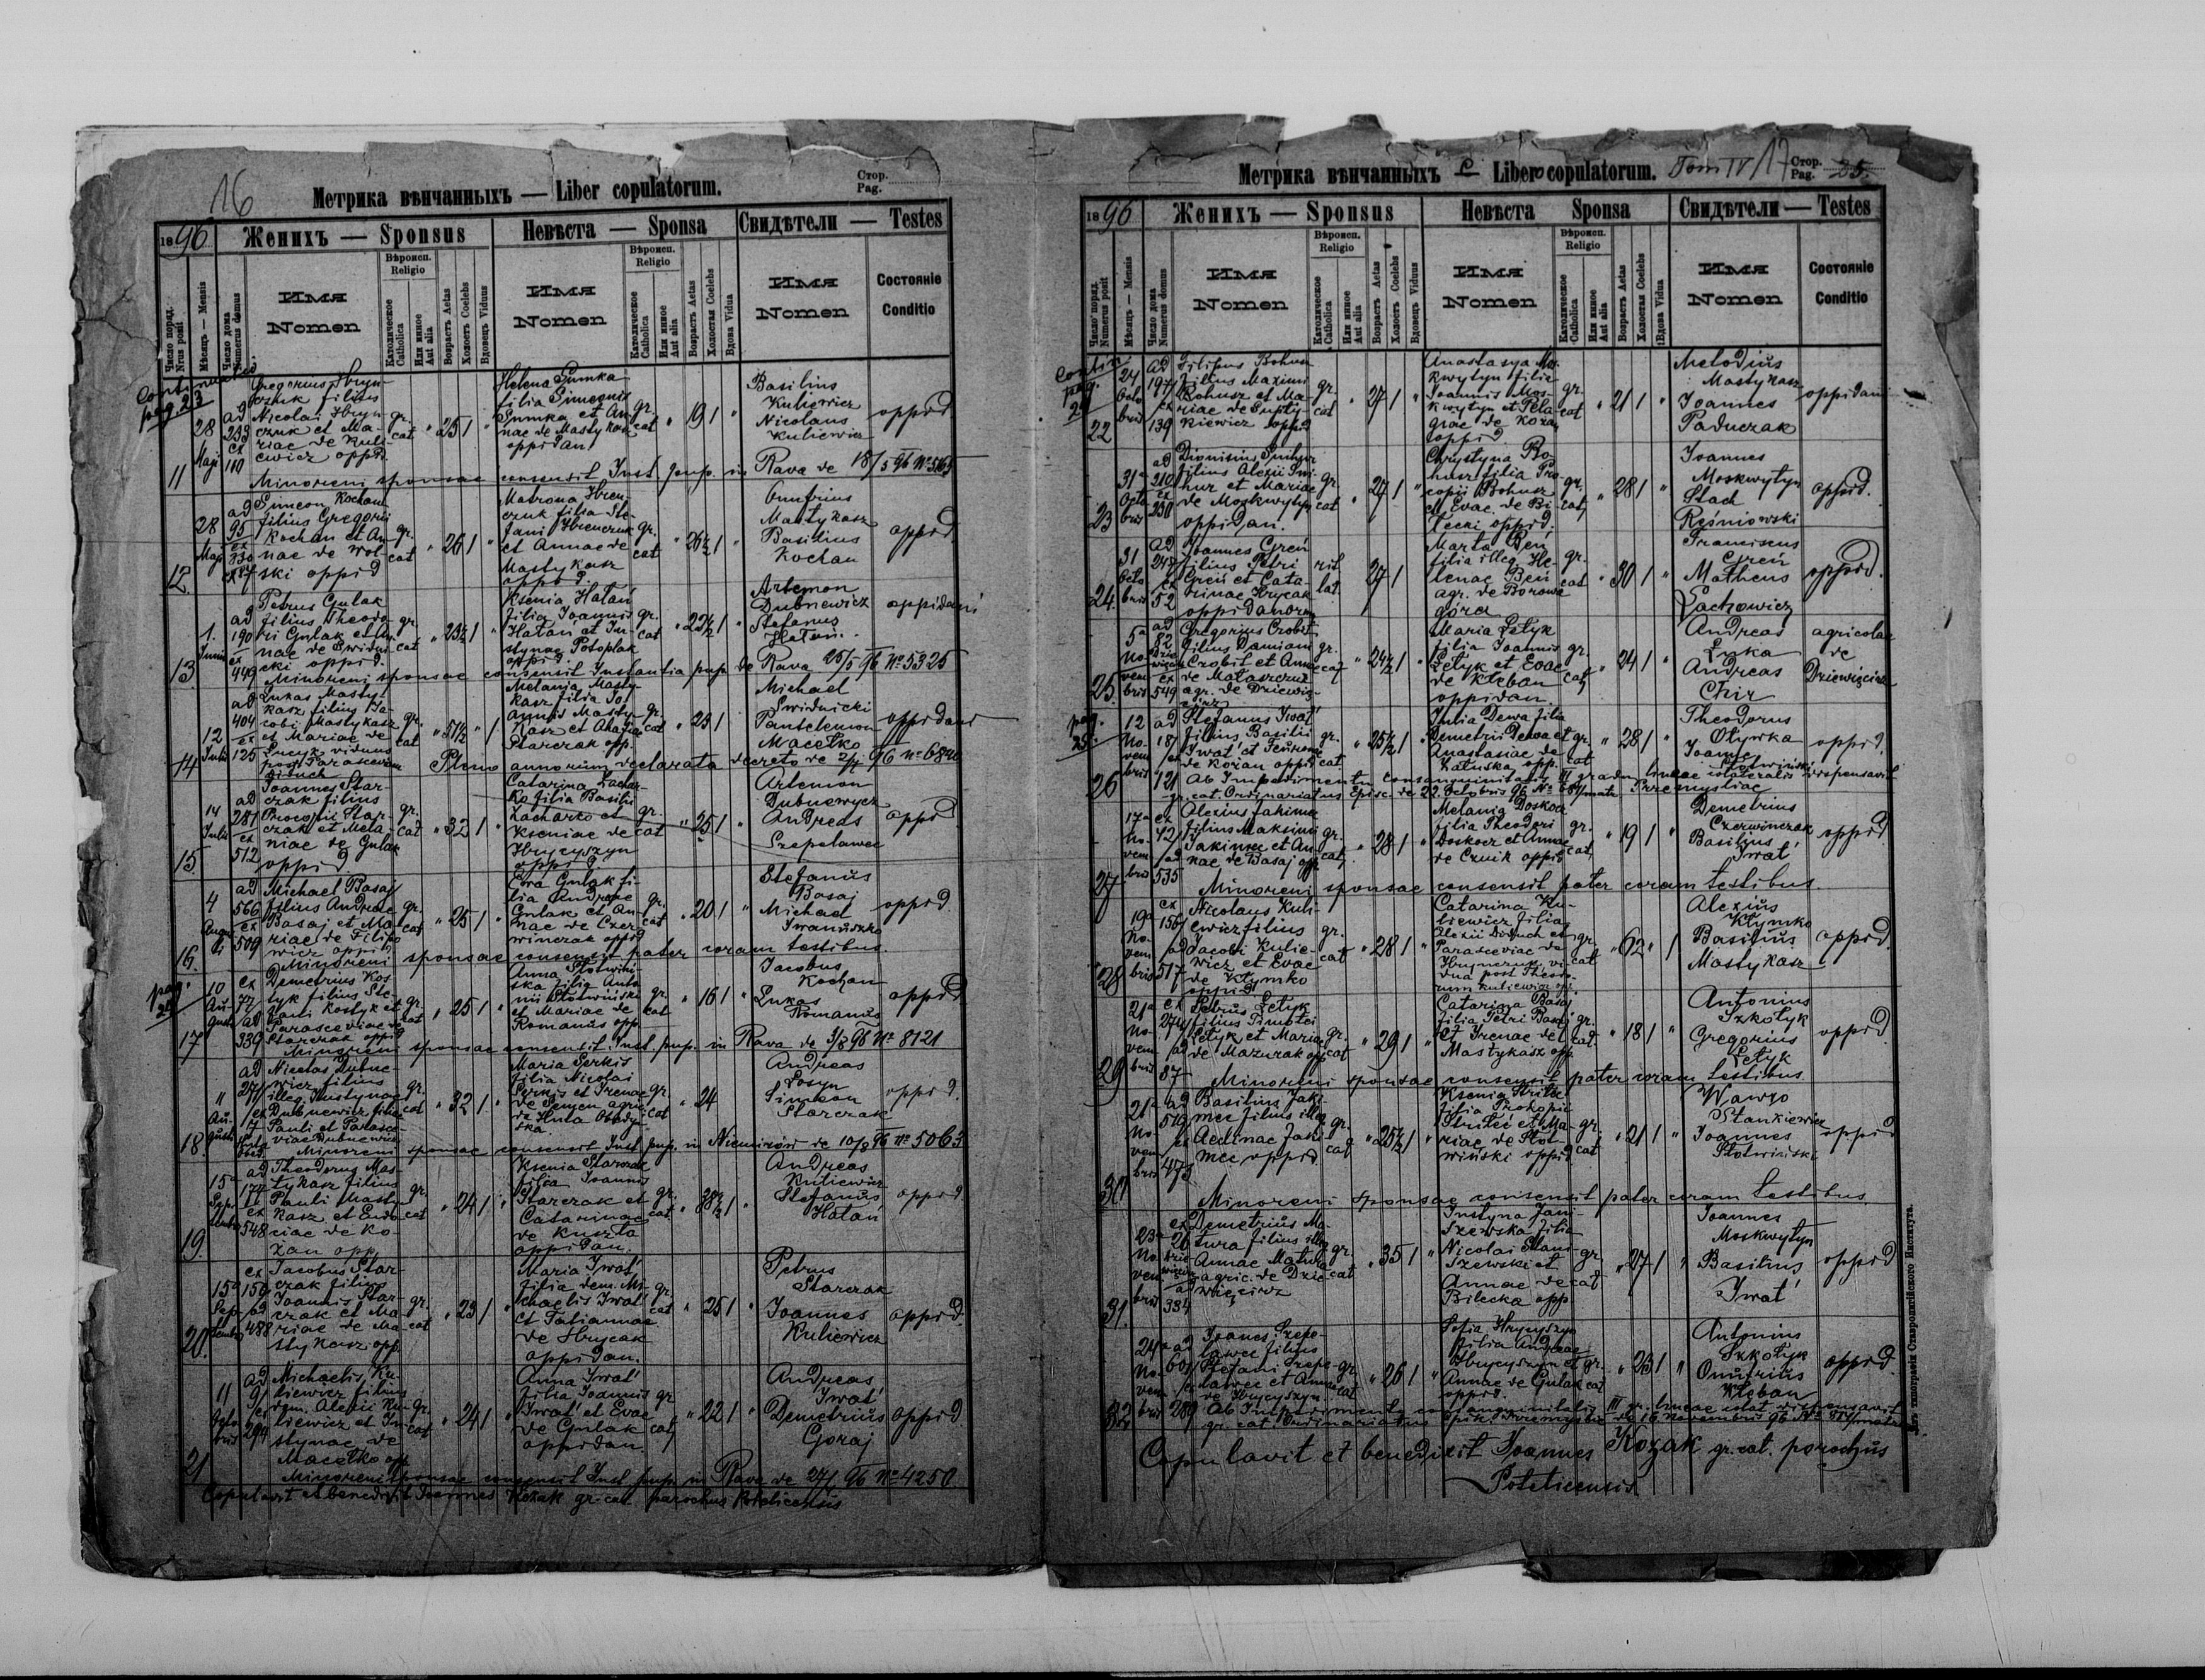 16
Метрика вѣнчанныхъ — Liber copulatorum.
Стор.
Pag.
1896
Женихъ — Sponsus
Невѣста — Sponsa
Свидѣтели — Testes
Число поряд.
Nrus posit
Мѣсяцъ — Mensis
Число дома
Numerus domus
Имя
Nomen
Вѣроисп.
Religio
Католическое
Catholica
Или иное
Aut alia
Возрастъ Aetas
Холостъ Coelebs
Вдовецъ Viduus
Имя
Nomen
Вѣроисп.
Religio
Католическое
Catholica
Или иное
Aut alia
Возрастъ Aetas
Холостая Coelebs
Вдова Vidua
Имя
Nomen
Состояніе
Conditio
pag. 23
11
28
Maji
ad
233
ex
110
Gregorius Hryn-
czuk filius
Nicolai Hryn-
czuk et Ma-
riae de Kuli-
ewicz oppid.
gr.
cat
25 1
Helena Gumka
filia Simeonis
Gumka et An-
nae de Mastykasz
oppidan
gr.
cat
19 1
Basilius
Kuliewicz
Nicolaus
Kuliewicz
oppid
Minoreni sponsae consensit Inst. pup. in Rava de 18/5 96 №
12
28
Maji
ad
95
ex
Simeon Kochan
filius Gregorii
Kochan et An-
nae de Wol-
ski oppid
gr.
cat
26 1
Matrona Hren-
czuk filia Ste-
fani Hrenczuk
et Annae de
Mastykasz
oppid.
gr.
cat
26½ 1
Onufrius
Mastykasz
Basilius
Kochan
oppid.
13
1.
Junii
ad
190
ex
449
Petrus Gulak
filius Theodo-
ri Gulak et An-
nae de Swidni-
cki oppid.
gr.
cat
23½ 1
Ksenia Hatań
filia Joannis
Hatań et Ju-
stynae Potoplak
oppid.
gr.
cat
Artemon
Dubnewicz
Stefanus
Hatań
oppidani
Minoreni sponsae consensit Instantia pup. de Rava 26/5 96 № 5325
14
12
Julii
ad
404
ex
125
Lukas Masty-
kasz filius Ja-
cobi Mastykasz
et Mariae de
Lucyk viduus
post Parascevam
Diduch
gr.
cat
51½ 1
Melania Masty-
kasz filia Jo-
annis Masty-
kasz et Ahafiae
Starczak opp.
gr.
cat
25 1
Michael
Swidnicki
Panteleimon
Macełko
oppidani
Pleno annorum declarata decreto de 2/7 96 № 6840
15
14
Julii
ad
281
ex
512
Joannes Star-
czak filius
Procopii Star-
czak et Mela-
niae de Gulak
oppid
gr.
cat
32 1
Catarina Zachar-
ko filia Basilii
Zacharko et
Kseniae de
Hrycyszyn
oppid
gr.
cat
25 1
Artemon
Dubnewycz
Andreas
Szepelawec
oppid
16.
4
Augu
sti
ad
566
ex
509
Michael Basaj
filius Andreae
Basaj et Ma-
riae de Filipo-
wicz oppid
gr.
cat
25 1
Eva Gulak fi-
lia Andreae
Gulak et An-
nae de Czer-
winczak oppid
gr.
cat
20 1
Stefanus
Basaj
Michael
Iwanuszko
oppid
Minoreni sponsae consensit pater coram testibus.
pag.
24
17
10
Au-
gusti
ex
77
ad
339
Demetrius Kos-
tyk filius Ste-
fani Kostyk et
Parasceviae de
Starczak oppid
gr
cat
25 1
Anna Słotwiń-
ska filia Anto-
nii Słotwiński
et Mariae de
Romanus opp.
gr.
cat
16 1
Jacobus
Kochan
Lukas
Romanus
oppid
Minoreni sponsae consensit Inst. pup. in Rava de 1/8 96 № 8121
18.
11
Au-
gusti
ad
271
ex
17
Nicolas Dubne-
wicz filius
illeg. Justynae
Dubnewicz filia
Pauli et Parasce-
viae Dubnewicz
gr.
cat
32 1
Maria Serkis
filia Nicolai
Serkis et Irenae
de Semen agric
de Huta Obedyn-
ska
gr
cat
24
Andreas
Losyn
Simeon
Starczak
oppid.
Minoreni sponsae consensit Inst. pup. in Niemirów de 10/8 96 № 5063
19.
15a
Sep-
tembris
ad
177
ex
548
Theodorus Mas-
tykasz filius
Pauli Masty-
kasz et Eudo-
ciae de Ko-
zan opp.
gr.
cat
24 1
Ksenia Starczak
filia Joannis
Starczak et
Catarinae
de Kuszta
oppidan.
gr.
cat
38½ 1
Andreas
Kuliewicz
Stefanus
Hatań
oppid
20.
15a
Sep-
tembris
ex
150
ad
488
Jacobus Star-
czak filius
Joannis Star-
czak et Ma-
riae de Ma-
stykasz opp.
gr.
cat
23 1
Maria Iwat'
filia dem. Mi-
chaelis Iwat'
et Tatiannae
de Hrycak
oppidan.
gr.
cat
25 1
Petrus
Starczak
Joannes
Kuliewicz
oppid.
21
11
Octo-
bris
ad
91
ex
294
Michaelis Ku-
liewicz filius
dem. Alexii Ku-
liewicz et Ju-
stynae de
Macełko opp.
gr
cat
24 1
Anna Iwat'
filia Joannis
Iwat' et Evae
de Gulak
oppidan
gr
cat
22 1
Andreas
Iwat'
Demetrius
Goraj
oppid
Minoreni sponsae consensit Inst. pup. in Rava de 27/ 96 № 4250
Copulavit et benedixit Joannes Kozak gr. cat. parochus Potelicensis
Метрика вѣнчанныхъ — Liber copulatorum.
Tom IV
17
Стор.
Pag.
25.
1896
Женихъ — Sponsus
Невѣста Sponsa
Свидѣтели — Testes
Число поряд.
Numerus posit
Мѣсяцъ — Mensis
Число дома
Numerus domus
Имя
Nomen
Вѣроисп.
Religio
Католическое
Catholica
Или иное
Aut alia
Возрастъ Aetas
Холостъ Coelebs
Вдовецъ Viduus
Имя
Nomen
Вѣроисп.
Religio
Католическое
Catholica
Или иное
Aut alia
Возрастъ Aetas
Холостая Coelebs
Вдова Vidua
Имя
Nomen
Состояніе
Conditio
pag.
22
24
Octo
bris
ad
197
ex
139
Filipus Bohusz
filius Maximi
Bohusz et Ma-
riae de
kiewicz oppid
gr.
cat
27 1
Anastasya Mos-
kwytyn filia
Joannis Mos-
kwytyn et Pela-
giae de Kozan
oppid
gr.
cat
21 1
Melodius
Mastykasz
Joannes
Paduczak
oppidani
23
31a
Octo
bris
ad
210
ex
230
Dionisius Smihur
filius Alexii Smi-
hur et Mariae
de Moskwytyn
oppidan.
gr.
cat
27 1
Chrystyna Bo-
husz filia Pro-
copii Bohusz
et Evae de Bi-
lecki oppid.
gr.
cat
28 1
Joannes
Moskwytyn
Stach
Reśniowski
oppid.
24.
31
Octo
bris
ad
247
ex
52
Joannes Greń
filius Petri
Greń et Cata-
rinae Hrycak
oppidanorum
rit
lat.
27 1
Marta Beń
filia illeg. He-
lenae Beń
agr. de Borowa
góra
gr.
cat
30 1
Franciscus
Greń
Matheus
Lachowicz
oppid.
25.
5a
No-
vem
bris
ad
82
ex
549
Gregorius Crobit
filius Damiani
Crobit et Annae
de Mataszczuk
agr. de Dziewię-
cierz
gr.
cat
24½ 1
Maria Łetyk
filia Joannis
Łetyk et Evae
de Kłeban
oppidan.
gr.
cat
24 1
Andreas
Łuka
Andreas
Chir
agricolae
de
Dziewięcierz
pag.
25.
26
12
No-
vem
bris
ad
187
ex
121
Stefanus Iwat'
filius Basilii
Iwat' et
de Kozan oppid
gr.
cat
25½ 1
Julia Dewa filia
Demetrii Dewa et
Anastasiae de
Katuska opp.
gr.
cat
28 1
Theodorus
Otywka
Joannes
Słotwiński
oppid.
Ab Impedimento consanguinitatis III gradu lineae colateralis dispensavit
gr. cat. Ordinariatus Episc. de 22. Octobris 96 № Premysliae
27.
17a
No-
vem
bris
ex
42
ad
535
Alexius Jakimec
filius Maksimi
Jakimec et An-
nae de Basaj opp.
gr.
cat
28 1
Melania Doskocz
filia Theodori
Doskocz et Annae
de Czuik oppid
gr.
cat
19 1
Demetrius
Czerwinczak
Basilius
Iwat'
oppid
Minoreni sponsae consensit pater coram testibus.
28
19a
No-
vem
bris
ex
156
ad
517
Nicolaus Kuli-
ewicz filius
Jacobi Kulie-
wicz et Evae
de Kłymko
oppid.
gr.
cat
28 1
Catarina Ku-
liewicz filia
Alexii Diduch et
Parasceviae de
Hrynczuk vi-
dua post Theodo-
rum Kuliewicz opp.
gr.
cat
62 1
Alexius
Kłymko
Basilius
Mastykasz
oppid.
29
21a
No-
vem
bris
ex
274
ad
87
Petrus Łetyk
filius Timotei
Łetyk et Maria
de Mazurak opp
gr.
cat
29 1
Catarina Basaj
filia Petri Basaj
et Irenae de
Mastykasz opp.
gr.
cat
18 1
Antonius
Szkołyk
Gregorius
Łetyk
oppid
Minoreni sponsae consensit pater coram testibus.
30
21a
No-
vem
bris
ad
519
ex
473
Basilius Jaki-
mec filius illeg
Jaki-
mec oppid.
gr.
cat
25½ 1
Ksenia Strilec
filia Prokopii
Strilec et Ma-
riae de Słot-
wiński oppid
gr.
cat
21 1
Wawro
Stankiewicz
Joannes
Słotwiński
oppid
Minoreni sponsae consensit pater coram testibus.
31.
23a
No-
vem
bris
ex
26
ad
384
Demetrius Ma-
tura filius illeg
Annae Matura
agric. de Dzie-
więcirz
gr.
cat
35 1
Justyna Jani-
szewska filia
Nicolai
szewski et
Annae de
Bilecka opp.
gr
cat
27 1
Joannes
Moskwytyn
Basilius
Iwat'
oppid
32
24a
No-
vem
bris
ad
601
ex
289
Joannes Szepe-
lawec filius
Stefani Szepe-
lawec et Annae
de Hrycyszyn
gr.
cat
26 1
Sofia Hrycyszyn
filia Andreae
Hrycyszyn et
Annae de Gulak
oppid.
gr.
cat
23 1
Antonius
Szkołyk
Onufrius
Kłeban
oppid
Ab Impedimento consanguinitatis III gr. lineae colat dispensavit
gr. cat Ordinariatus Epis. Premysliae de 16 Novembris 96 №
Copulavit et benedixit Joannes Kozak gr. cat. parochus
Potelicensis
Изъ типографіи Ставропигійского Института.